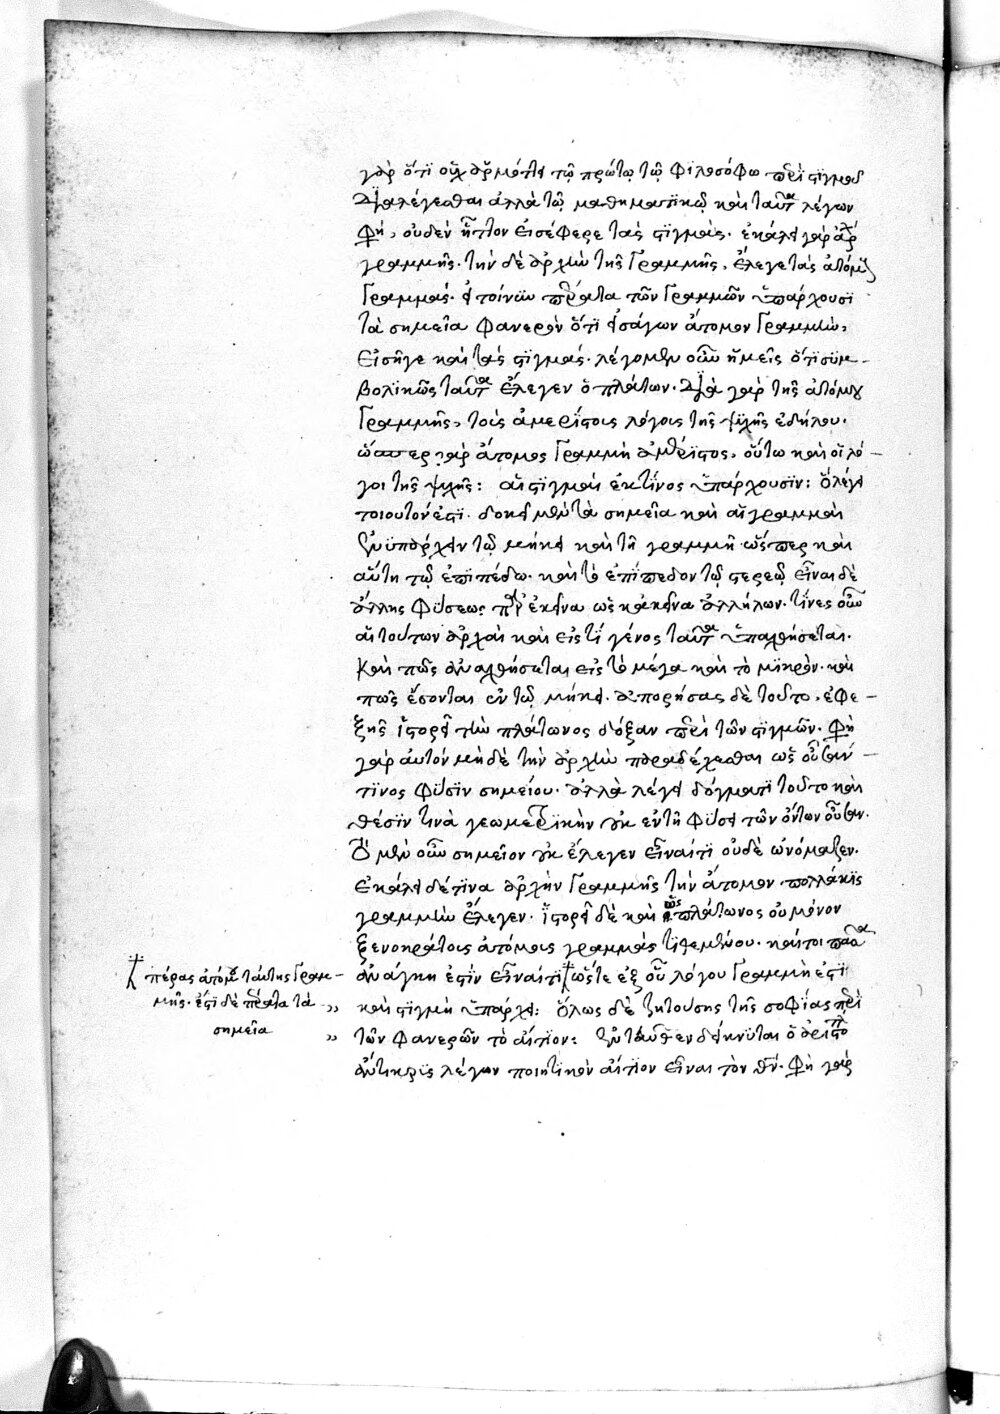 γὰρ ὅτι οὐχ ἁρμόττει τῷ πρώτῳ τῷ φιλοσόφῳ περὶ στιγμῶν
διαλέγεσθαι ἀλλὰ τῷ μαθηματικῷ καὶ ταῦτα λέγων
φησὶ, οὐδὲν ἧττον εἰσέφερε τὰς στιγμάς. ἐκάλει γὰρ ἀρχὴν
γραμμῆς. τὴν δὲ ἀρχὴν τῆς γραμμῆς, ἔλεγε τὰς ἀτόμους
γραμμάς. εἰ τοίνυν πέρατα τῶν γραμμῶν ὑπάρχουσι
τὰ σημεῖα φανερὸν ὅτι εἰσάγων ἄτομον γραμμὴν,
εἰσῆγε καὶ τὰς στιγμάς. λέγομεν οὖν ἡμεῖς ὅτι συμ-
βολικῶς ταῦτα ἔλεγεν ὁ πλάτων. διὰ γὰρ τῆς ἀτόμου
γραμμῆς, τοὺς ἀμερίστους λόγους τῆς ψυχῆς ἐδήλου.
ὥσπερ γὰρ ἄτομος γραμμὴ ἀμέριστος, οὕτω καὶ οἱ λό-
γοι τῆς ψυχῆς: αἱ στιγμαὶ ἐκ τίνος ὑπάρχουσιν: ὃ λέγει
τοιοῦτόν ἐστι. δοκεῖ μὲν τὰ σημεῖα καὶ αἱ γραμμαὶ
ἐνυπάρχειν τῷ μήκει καὶ τῇ γραμμῇ ὥσπερ καὶ
αὕτη τῷ ἐπιπέδῳ. καὶ τὸ ἐπίπεδον τῷ στερεῷ εἶναι δὲ
ἄλλης φύσεως παρ' ἐκεῖνα ὡς κἀκεῖνα ἀλλήλων. τίνες οὖν
αἱ τούτων ἀρχαὶ καὶ εἰς τί γένος ταῦτα ὑπαχθήσεται.
καὶ πῶς ἀναχθήσεται εἰς τὸ μέγα καὶ τὸ μικρὸν. καὶ
πῶς ἔσονται ἐν τῷ μήκει. ἀπορήσας δὲ τοῦτο, ἐφε-
ξῆς ἱστορεῖ τὴν πλάτωνος δόξαν περὶ τῶν στιγμῶν. φησὶ
γὰρ αὐτόν μηδὲ τὴν ἀρχὴν παραδέχεσθαι ὡς οὖσαν
τινος φύσιν σημείου. ἀλλὰ λέγει δόγματι τοῦτο καὶ
θέσιν τινὰ γεωμετρικὴν οὐκ ἐν τῇ φύσει τῶν ὄντων οὖσαν.
ὃ μὲν οὖν σημεῖον οὐκ ἔλεγεν εἶναί τι οὐδὲ ὠνόμαζεν.
ἐκάλει δέ τινα ἀρχὴν γραμμῆς τὴν ἄτομον πολλάκις
γραμμὴν ἔλεγεν. ἱστορεῖ δὲ καὶ ὡς πλάτωνος οὐ μόνον
ξενοκράτους ἀτόμους γραμμὰς τιθεμένου. καίτοι πᾶσα
ἀνάγκη ἐστὶν εἶναί τι ὥστε ἐξ οὗ λόγου γραμμὴ ἐστὶ
καὶ στιγμὴ ὑπάρχει: ὅλως δὲ ζητούσης τῆς σοφίας περὶ
τῶν φανερῶν τὸ αἴτιον: ἐντεῦθεν δείκνυται ὁ ἀριστο
ἄντικρυς λέγων ποιητικὸν αἴτιον εἶναι τὸν θν. φησὶ γὰρ
πέρας ἀτόμου ταύτης γραμ-
μῆς. ἔστι δὲ πέρατα τὰ
σημεῖα